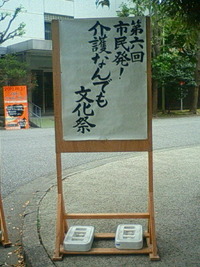 第六回
市民発!
介護なんでも
文化祭